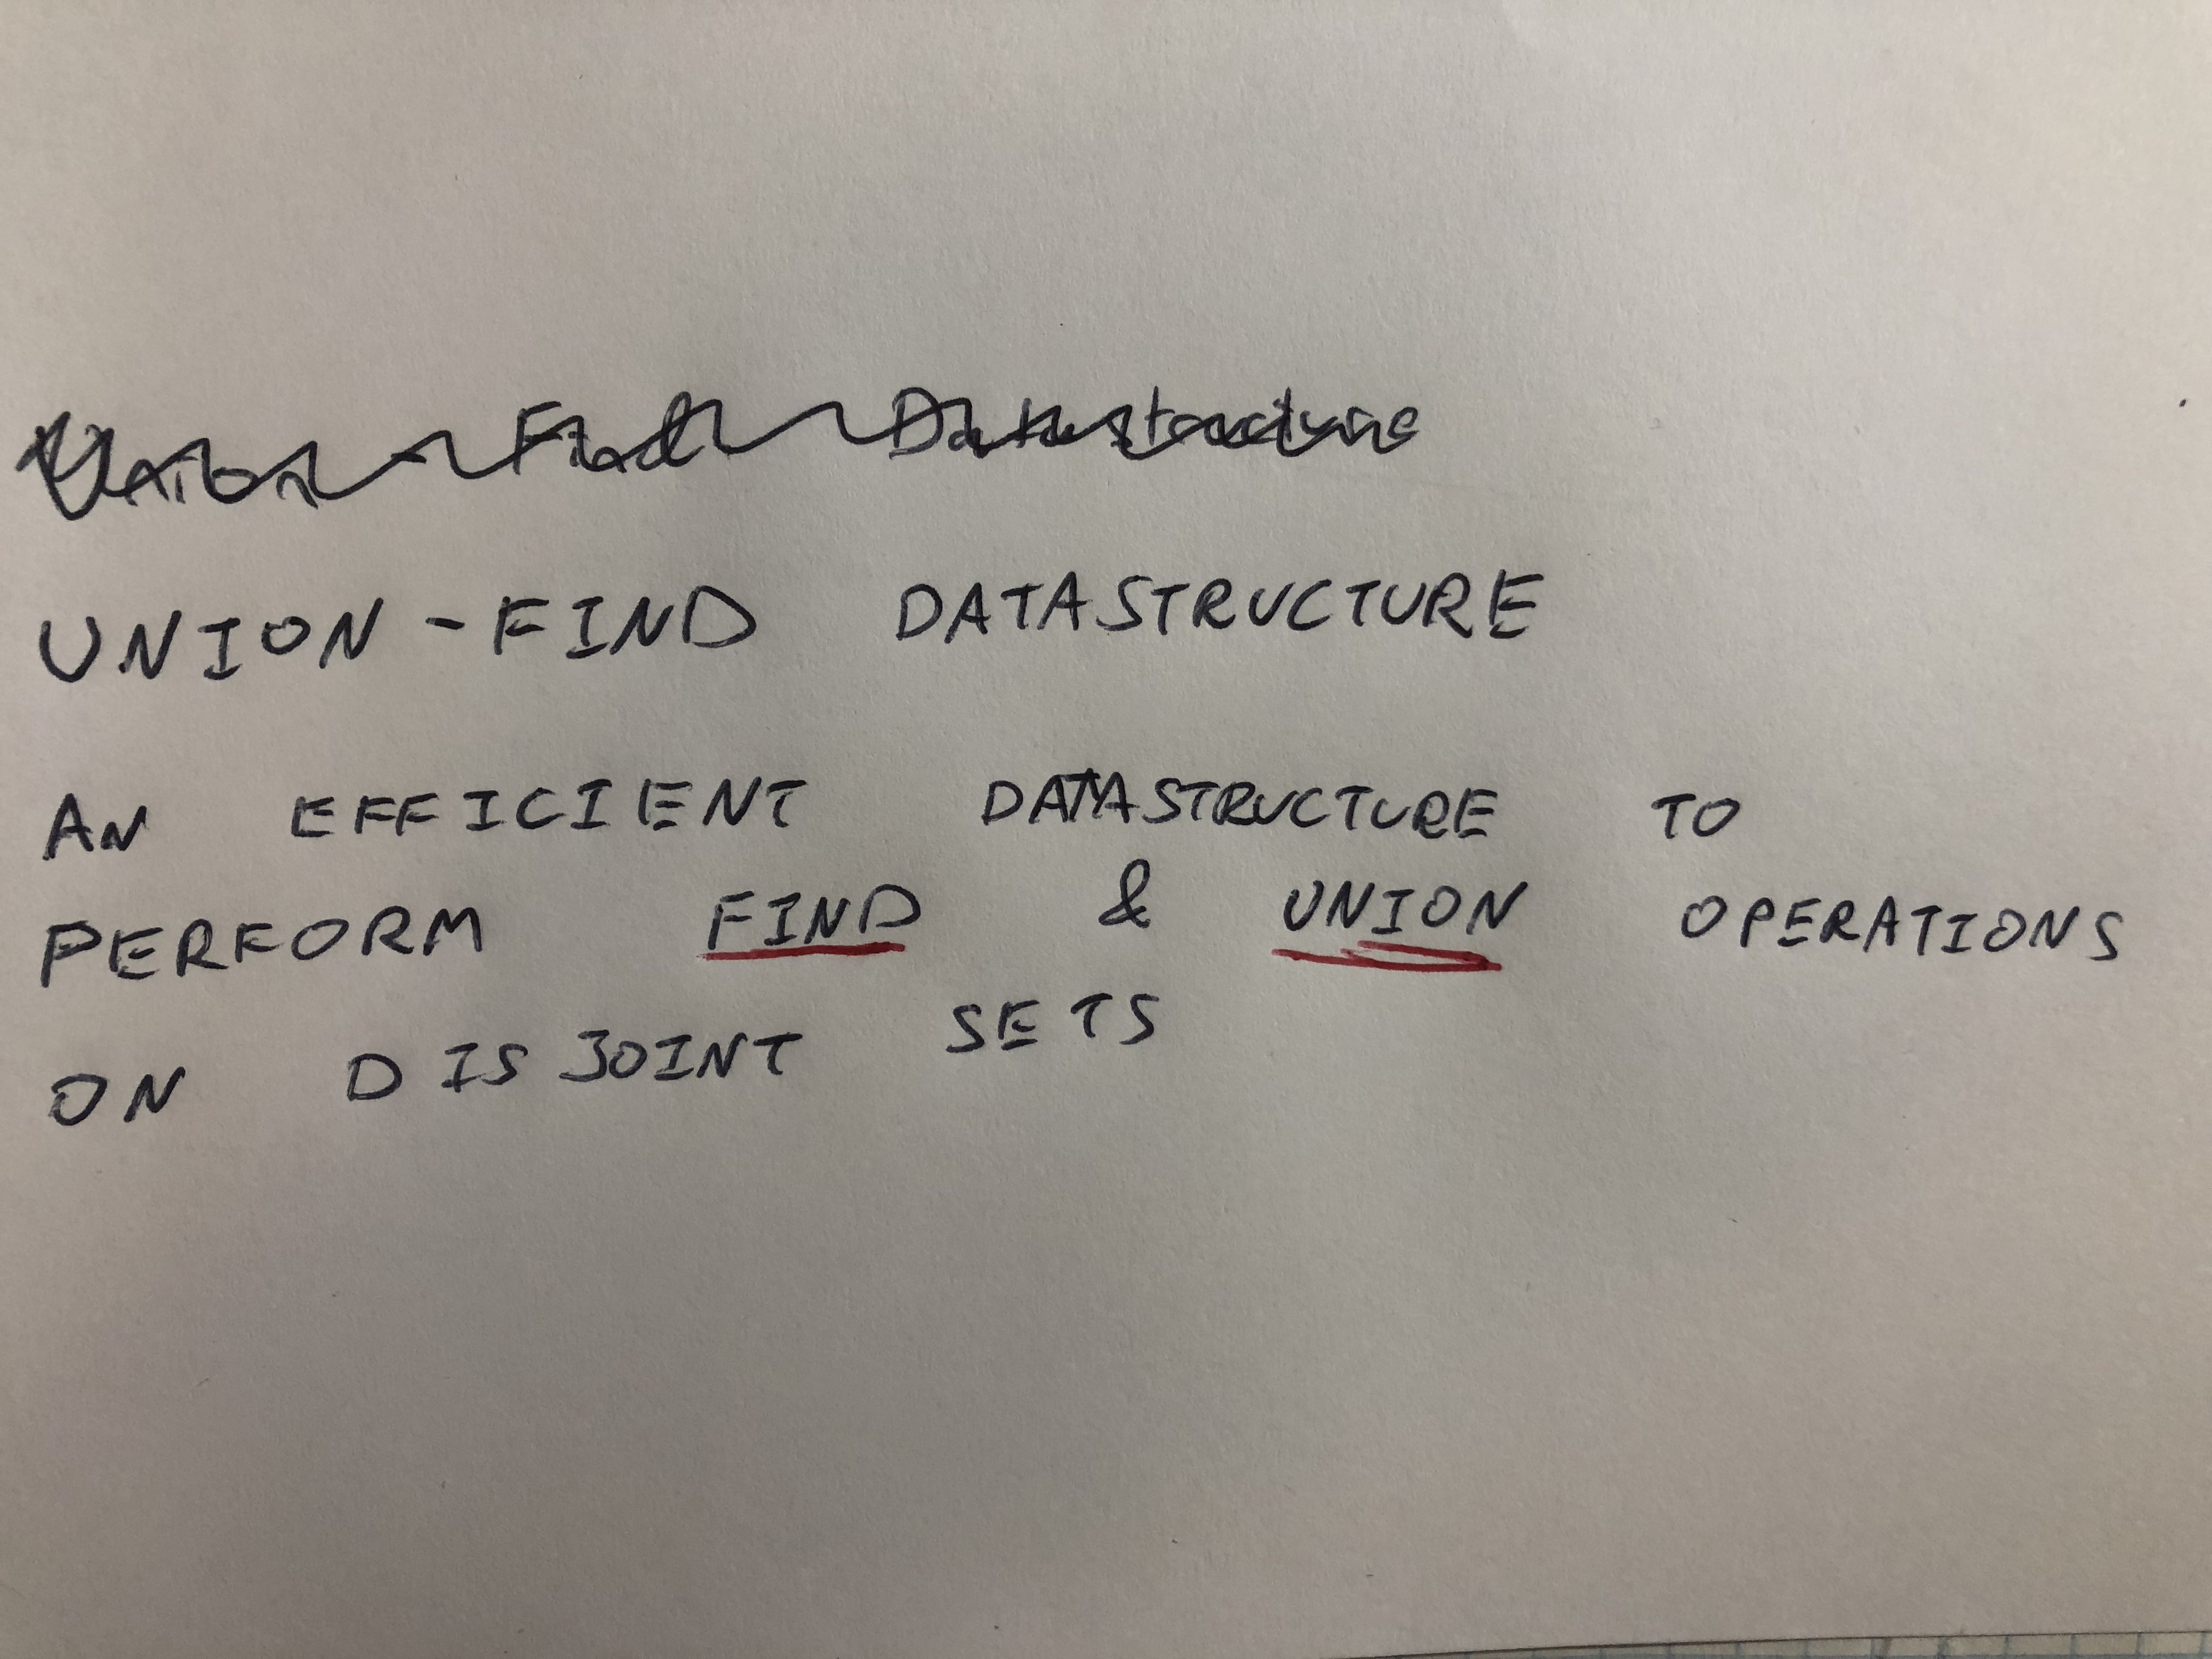 Union - Find Datastructure
UNION-FIND DATASTRUCTURE
AN EFFICIENT DATASTRUCTURE TO
PERFORM FIND & UNION OPERATIONS
ON DISJOINT SETS